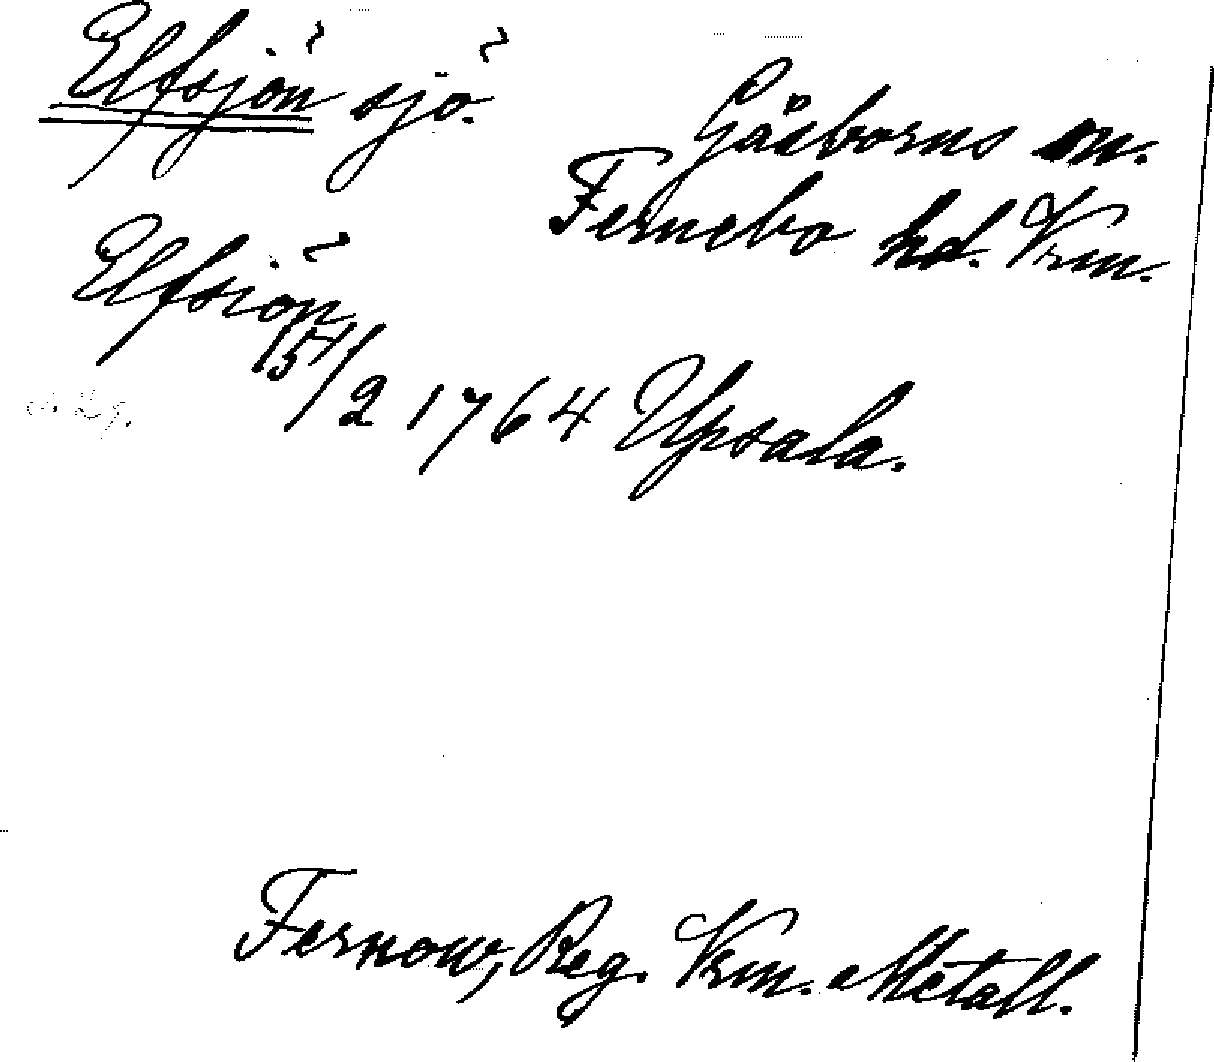 Elfsjön sjö.
Gåsborns sn.
Fernebo hd. Vrm.
Elfsiön
154/2 1764 Upsala.
Fernow, Reg. Vrm. Metall.